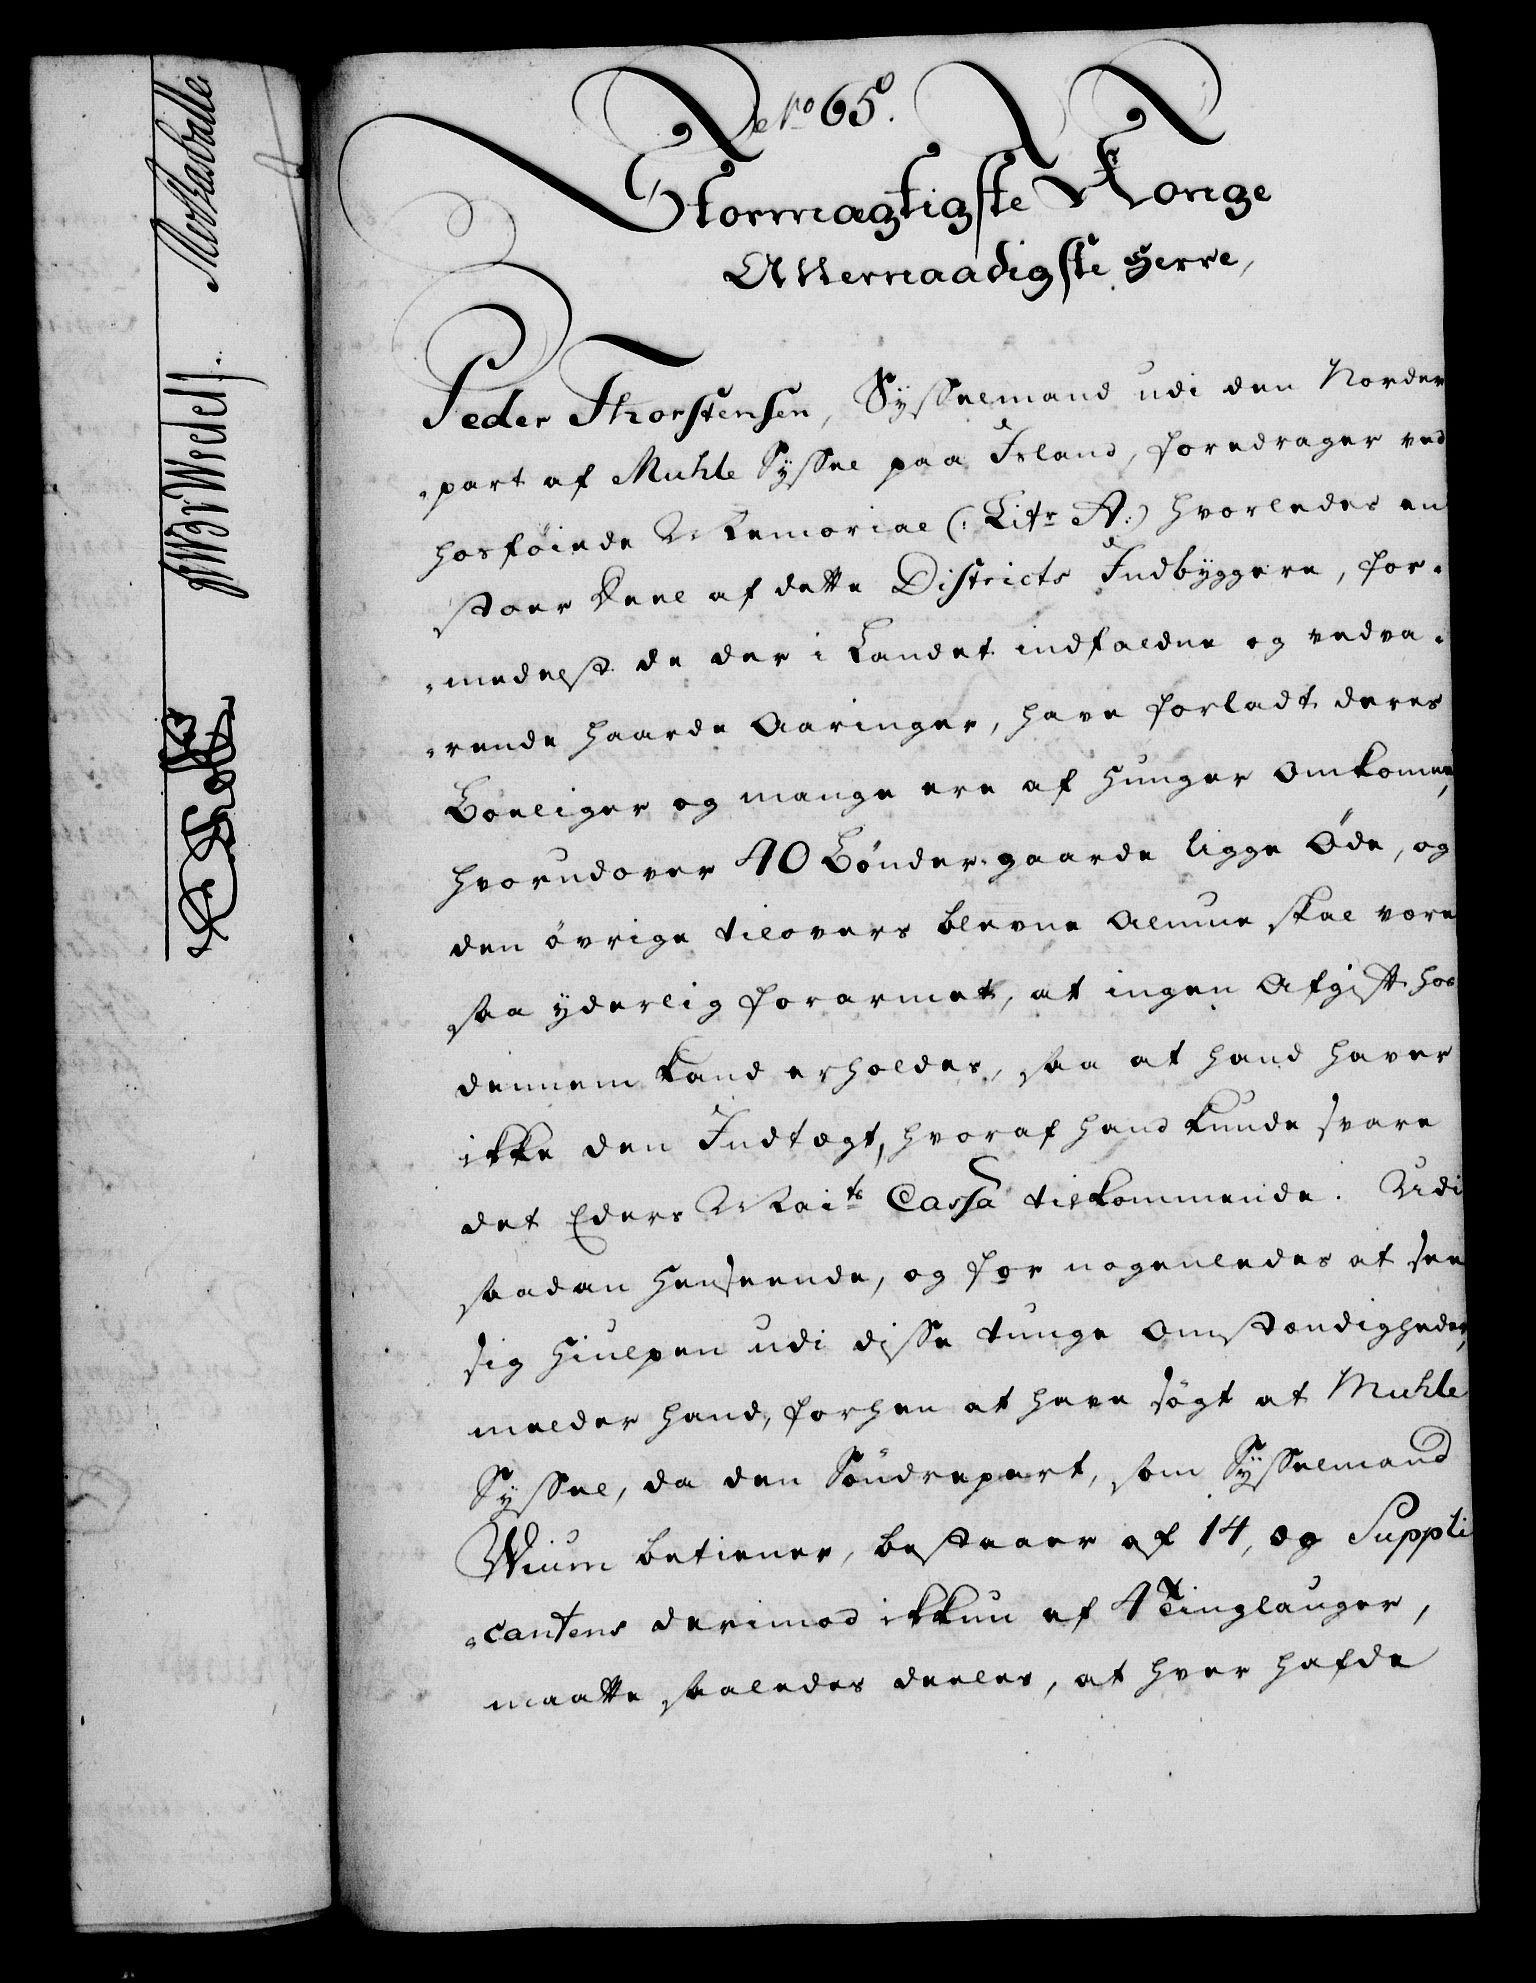 No 65.
Stormægtigste Konge
Allernaadigste Herre,
Peder Thorstensen, Sysselmand udi den Norder
part af Muhle Syssel paa Island, foredrager ved
hosføiede Memorial (: Litr A:) hvorledes en
stoer Deel af dette Districts Indbyggere, for-
medelst de der i Landet indfaldne og vedva-
rende haarde Aaringer, have forladt deres
Boeliger og mange ere af Hunger omkomne,
hvorudover 40 Bønder-gaarde ligge Øde, og
den øvrige tilovers blevne Almue skal være
saa yderlig forarmet, at ingen Afgift hos
dennem kand erholdes, saa at hand haver
ikke den Indtægt, hvoraf hand kunde svare
det Eders Maits Cassa tilkommende. Udi
saadan Henseende, og for nogenledes at see
sig hiulpen udi disse tunge Omstændigheder,
melder hand, forhen at have søgt at Muhle
Syssel, da den Søndrepart, som Sysselmand
Wium betiener, bestaaer af 14, og Suppli
cantens derimod ikkun af 4 Tinglauger,
maatte saaledes deeles, at hver hafde